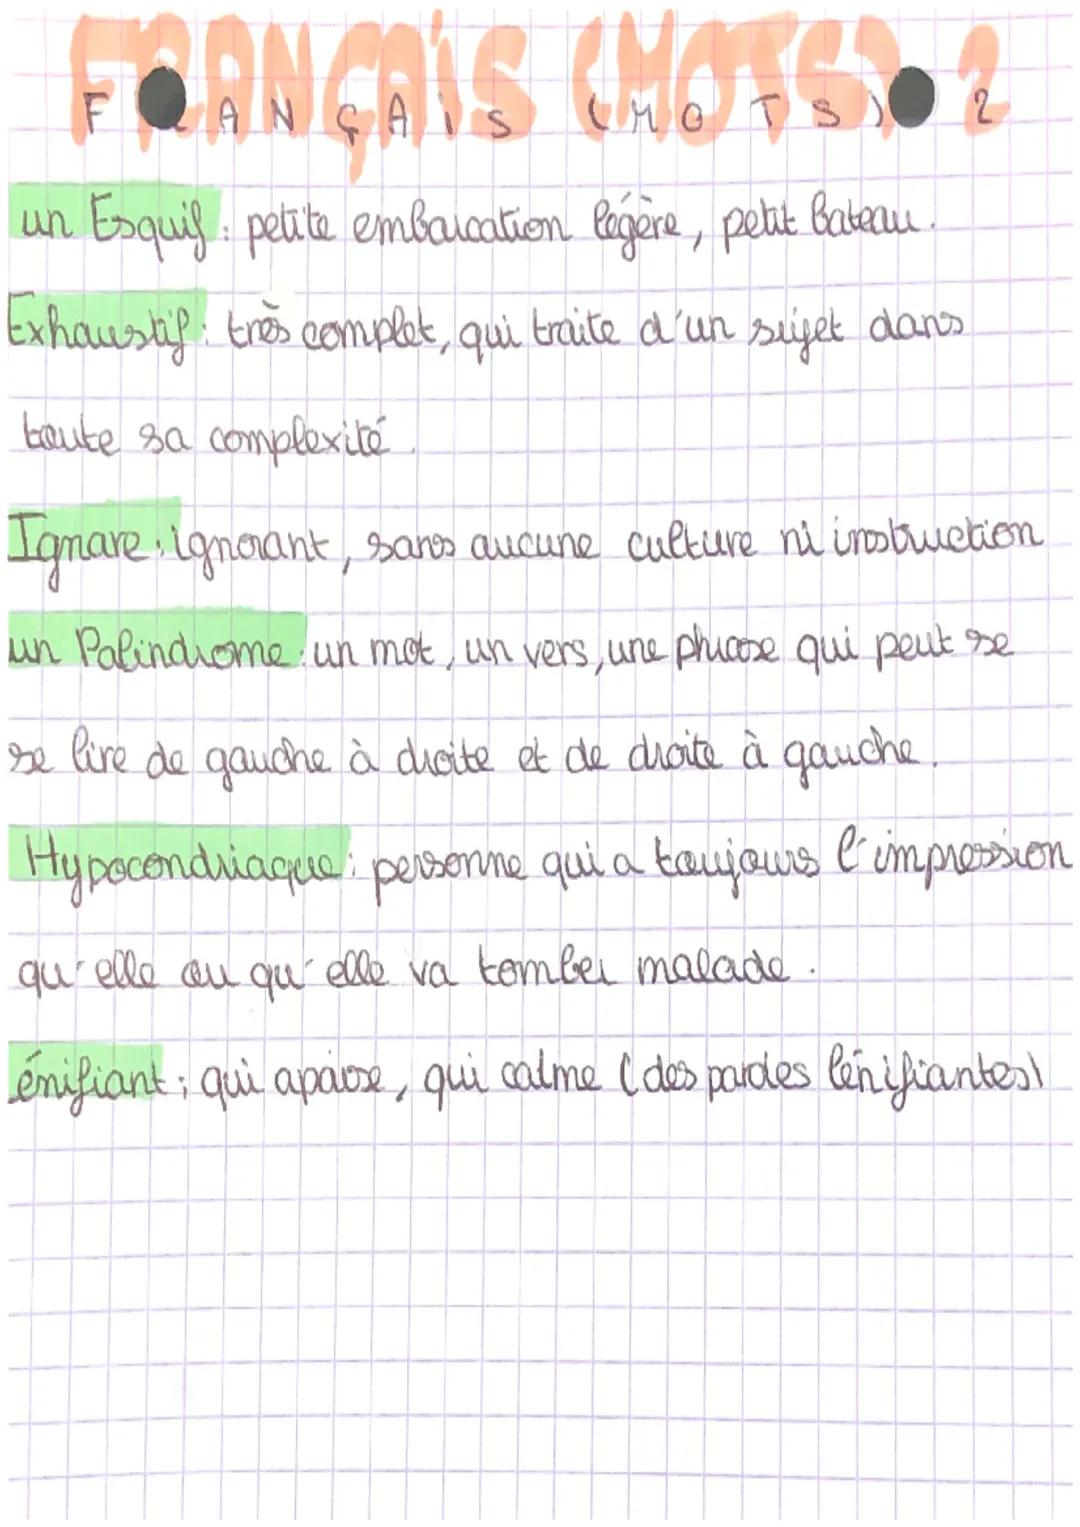 FRANÇAIS (MOTS) 2
un Esquif : petite embarcation légère, petit bateau.
Exhaustif : très complet, qui traite d'un sujet dans
toute sa complexité.
Ignare : ignorant, sans aucune culture ni instruction
un Palindrome : un mot, un vers, une phrase qui peut se
se lire de gauche à droite et de droite à gauche.
Hypocondriaque : personne qui a toujours l'impression
qu'elle ou qu'elle va tomber malade.
énifiant : qui apaise, qui calme (des paroles lénifiantes)